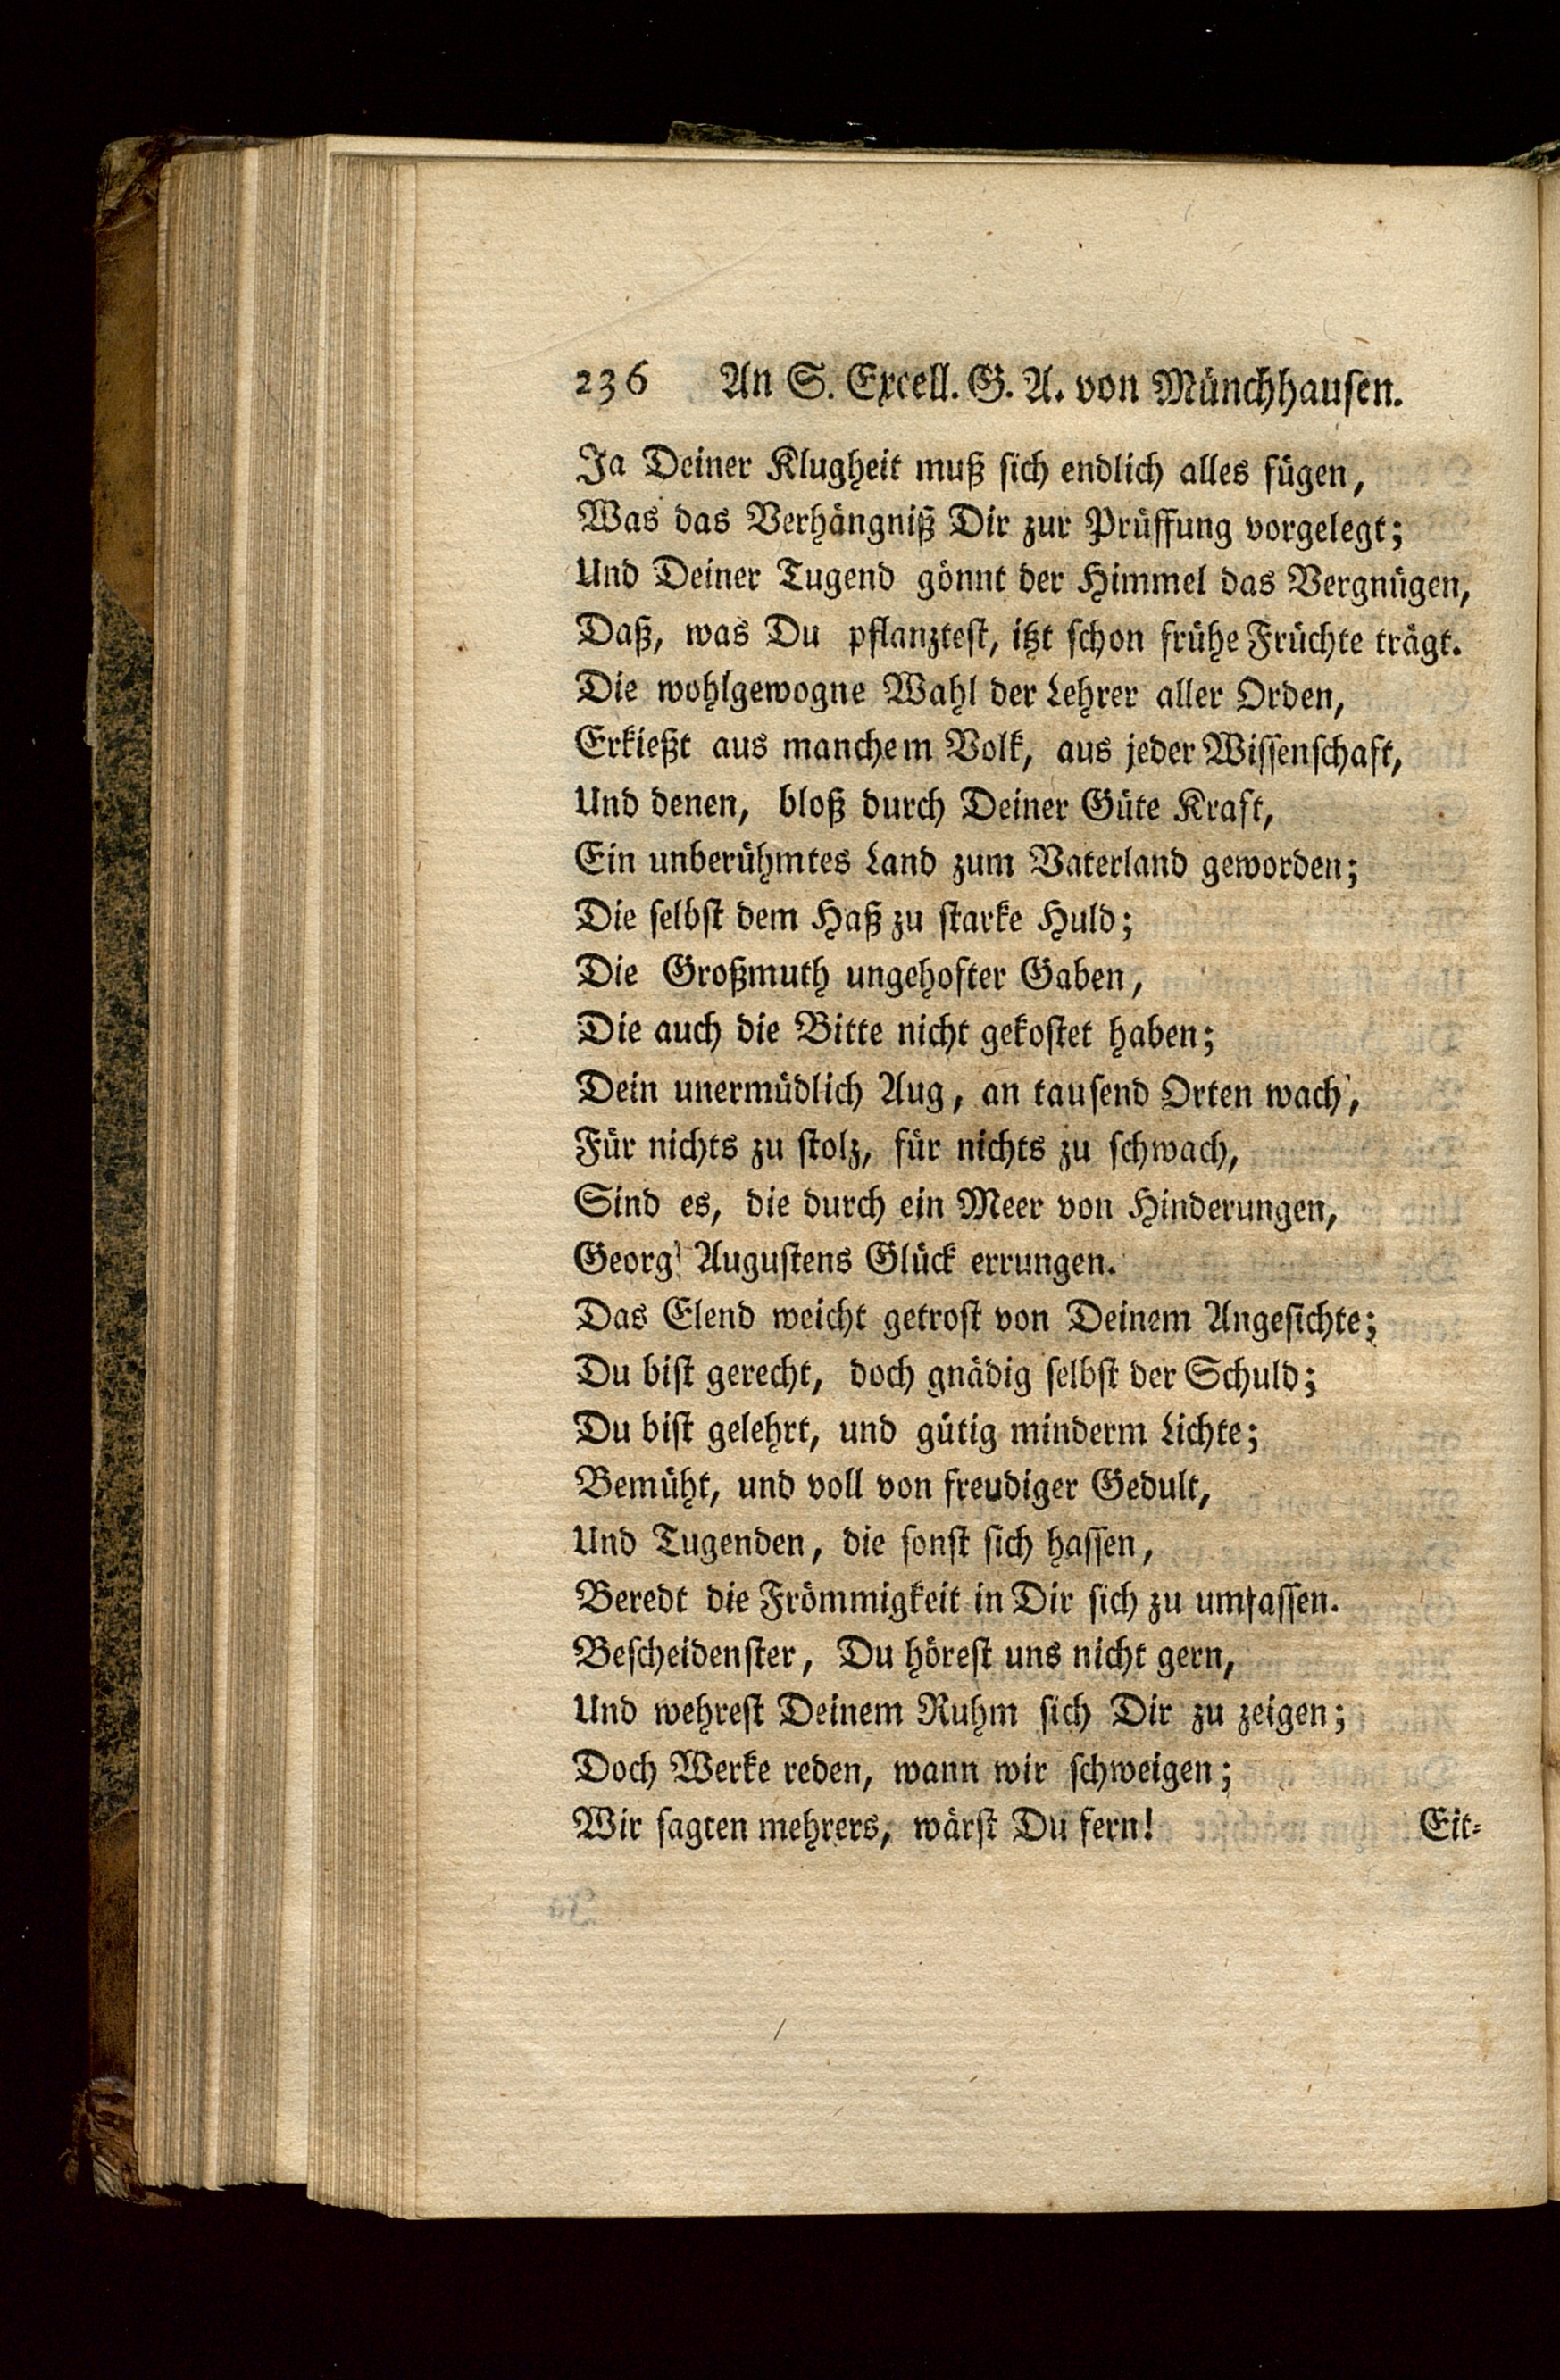 236 An S. Excell. G. A. von Münchhausen.
Ja Deiner Klugheit muß sich endlich alles fügen,
Was das Verhängniß Dir zur Prüffung vorgelegt;
Und Deiner Tugend gönnt der Himmel das Vergnügen,
Daß, was Du pflanztest, itzt schon frühe Früchte trägt.
Die wohlgewogne Wahl der Lehrer aller Orden,
Erkießt aus manchem Volk, aus jeder Wissenschaft,
Und denen, bloß durch Deiner Güte Kraft,
Ein unberühmtes Land zum Vaterland geworden;
Die selbst dem Haß zu starke Huld;
Die Großmuth ungehofter Gaben,
Die auch die Bitte nicht gekostet haben;
Dein unermüdlich Aug, an tausend Orten wach,
Für nichts zu stolz, für nichts zu schwach,
Sind es, die durch ein Meer von Hinderungen,
Georg Augustens Glück errungen.
Das Elend weicht getrost von Deinem Angesichte;
Du bist gerecht, doch gnädig selbst der Schuld;
Du bist gelehrt, und gütig minderm Lichte;
Bemüht, und voll von freudiger Gedult,
Und Tugenden, die sonst sich hassen,
Beredt die Frömmigkeit in Dir sich zu umfassen.
Bescheidenster, Du hörest uns nicht gern,
Und wehrest Deinem Ruhm sich Dir zu zeigen;
Doch Werke reden, wann wir schweigen;
Wir sagten mehrers, wärst Du fern! Eit-